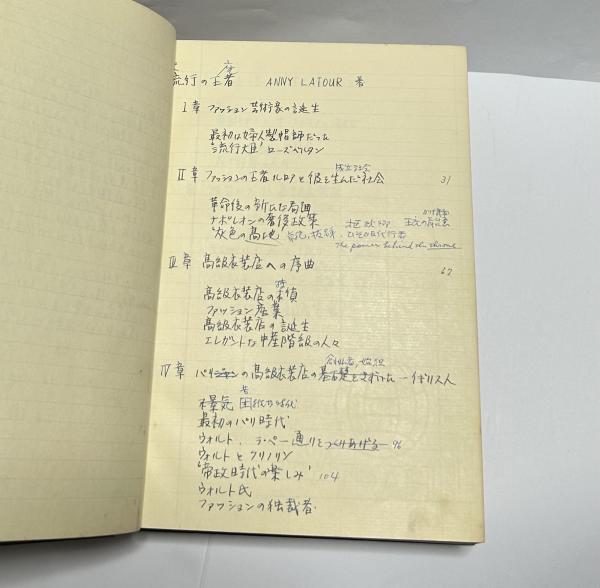 座
流行の王者 ANNY LATOUR 著
I章 ファッション芸術家の誕生
最初は婦人製帽師だった
"流行大臣" ローズベルタン
II章 ファッションの王者ルロアと彼を生んだ社会 31
革命後の新たな局面
ナポレオンの奢侈政策
"灰色の高地
The power behind the throne
III章 高級衣装店への序曲 67
高級衣装店の
ファッション産業
高級衣装店の誕生
エレガントな中産階級の人々
創始者
IV章 パリの高級衣装店の基礎をきずいた一イギリス人
最初のパリ時代
ウォルト、ラ・ペー通りをつくりあげる 96
ウォルトとクリノリン
"帝政時代の楽しみ" 104
ウォルト氏
ファッションの独裁者